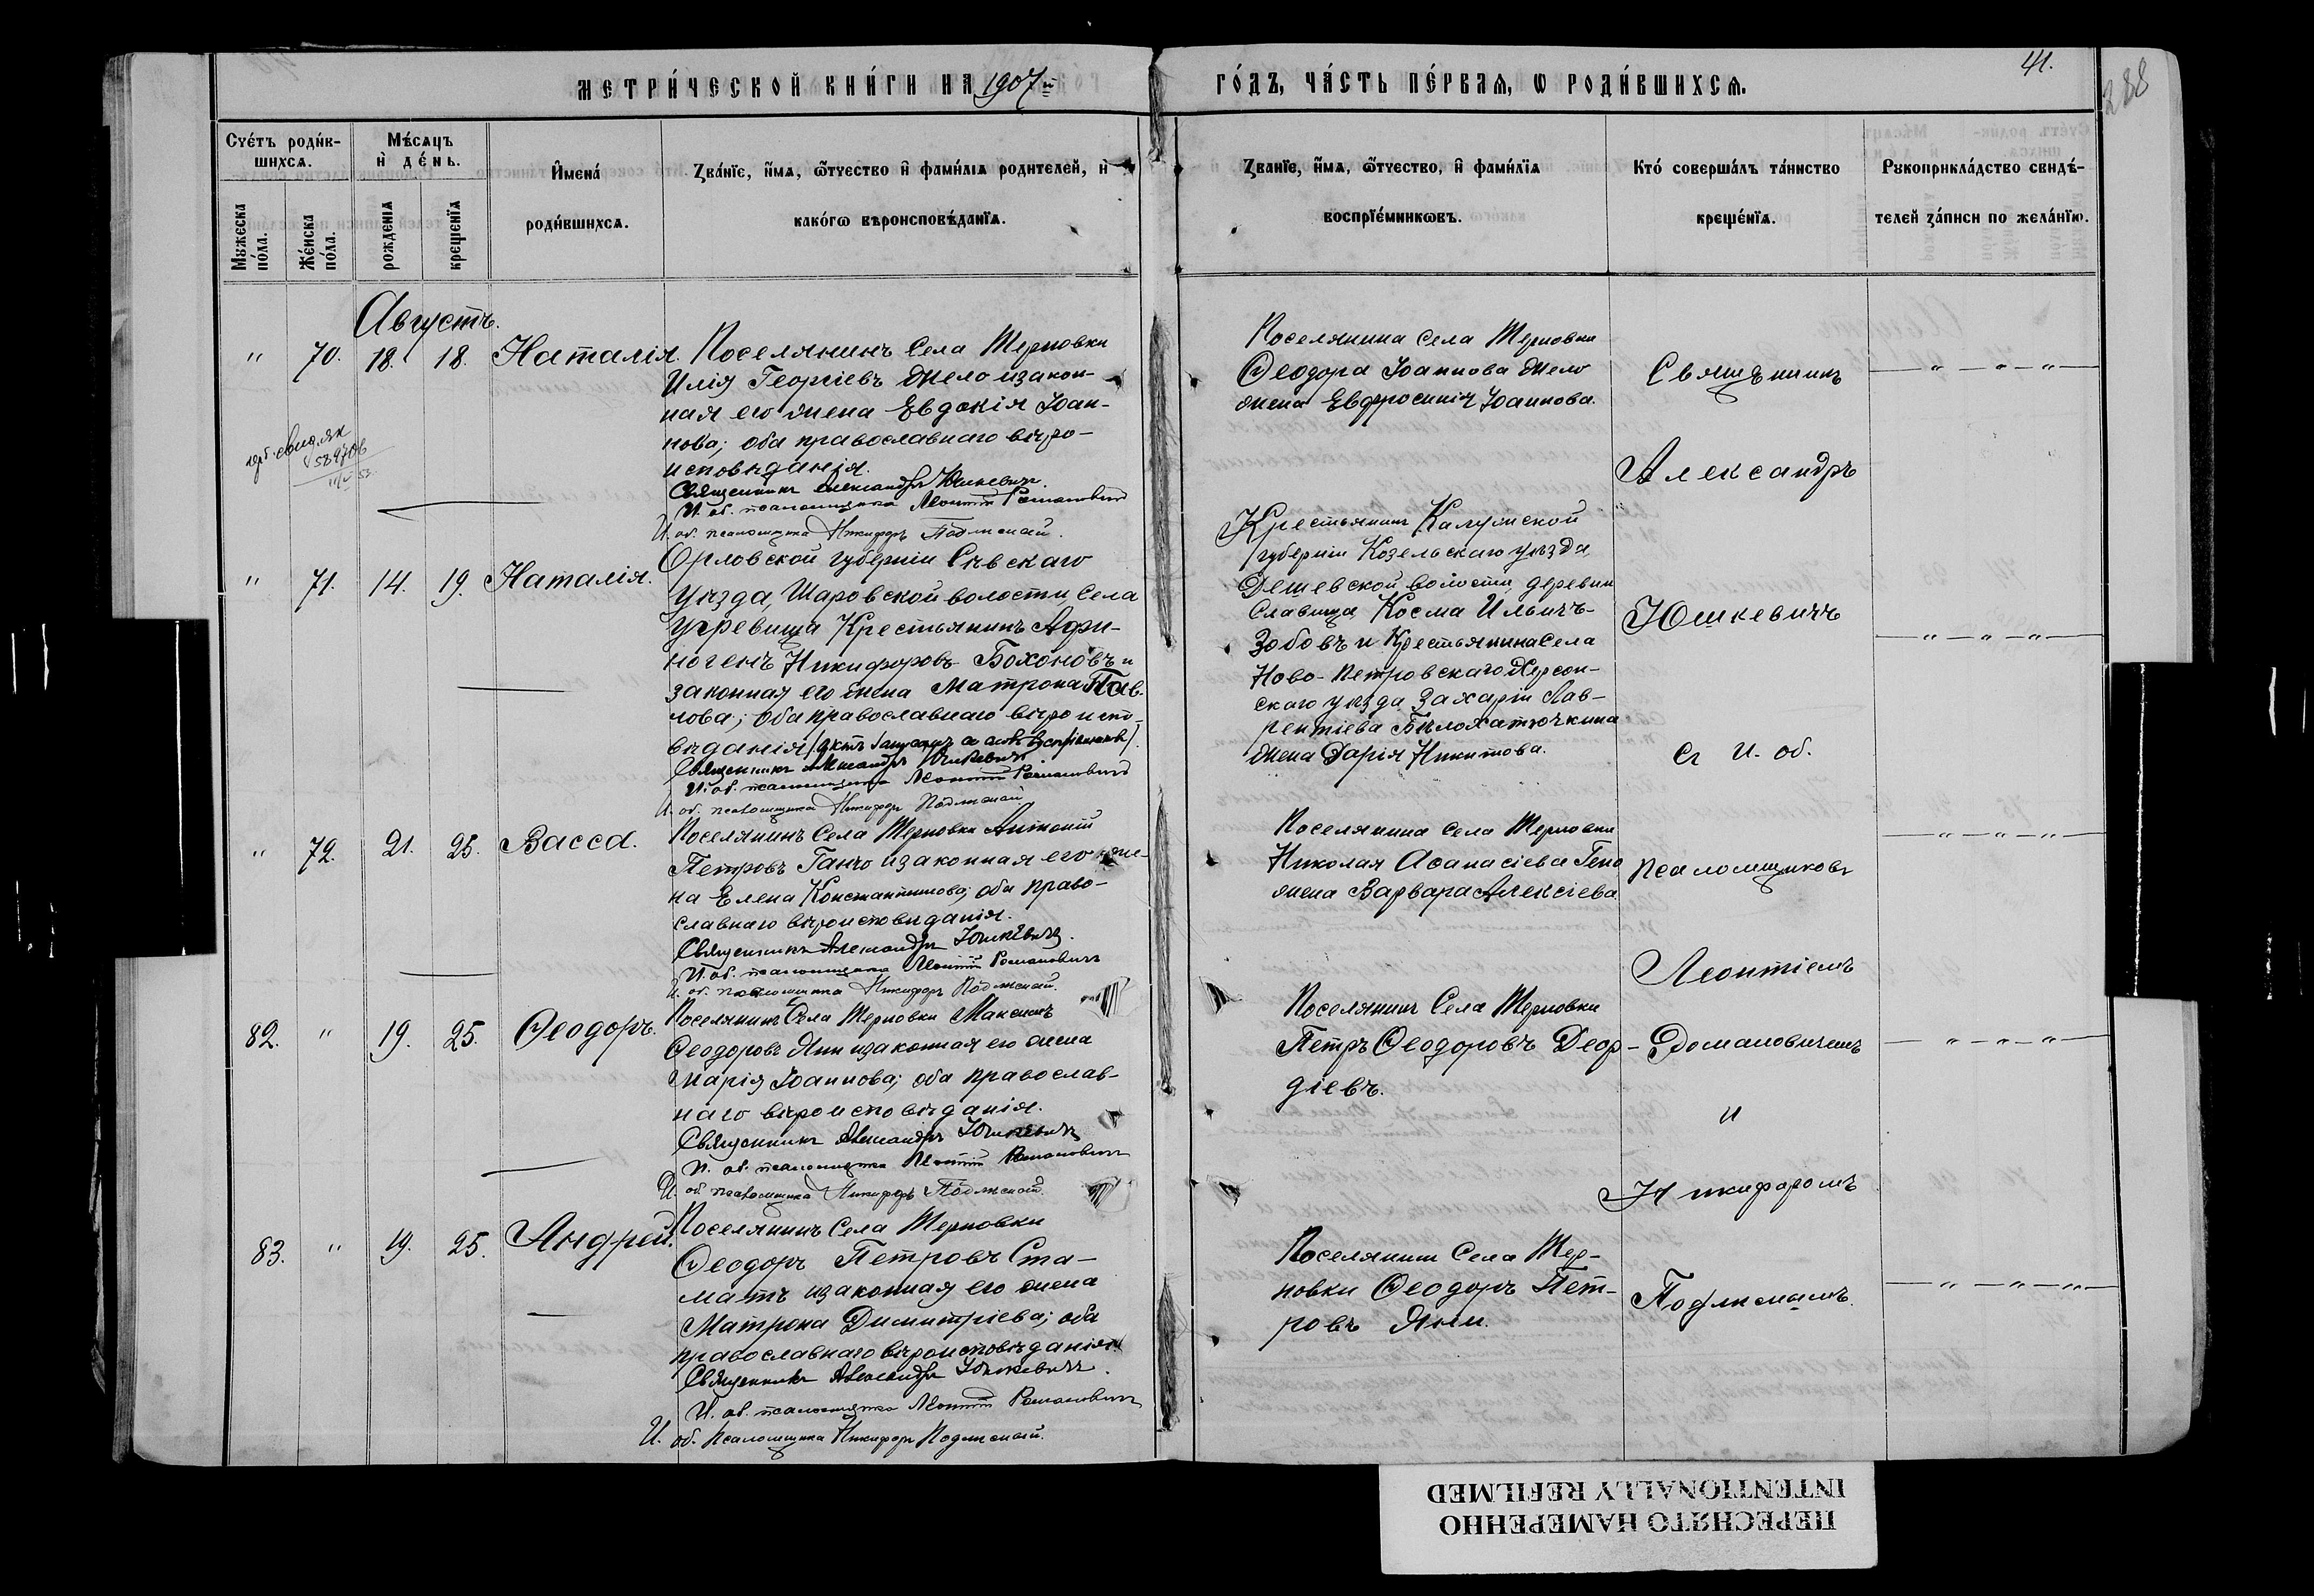 МЕТРИ́ЧЕСКОЙ КНИ́ГИ НА 1907й
ГО́ДЪ, ЧА́СТЬ ПЕ́РВАѦ, Ѡ РОДИ́ВШИХСѦ.
41.
288
Сче́тъ роди́в-
шихсѧ.
Мѣ́сѧцъ
и҆ де́нь.
Мꙋжеска
по́ла.
Же́нска
по́ла.
рожденїѧ
крещенїѧ
И҆мена́
роди́вшихсѧ.
Зва́нїе, и҆́мѧ, ѻ҆́тчество и҆ фами́лїѧ родителей, и҆
како́гѡ вѣроисповѣ́данїѧ.
Зва́нїе, и҆́мѧ, ѻ҆́тчество, и҆ фами́лїѧ
воспрїе́мникѡвъ.
Кто́ соверша́лъ та́инство
креще́нїѧ.
Рꙋкоприкла́дство свидѣ́-
телей за́писи по жела́нїю.
Августъ.
" 70. 18. 18. Наталія.
Поселянинъ села Терновки
Илія Георгіевъ Жело и закон-
ная его жена Евдокія Іоан-
нова; оба православнаго вѣро-
исповѣданія.
Священникъ Александръ Юшкевичъ.
И. об. псаломщика Леонтій Романовичъ
И. об. псаломщика Никифоръ Подлисный.
Поселянина села Терновки
Ѳеодора Іоаннова Жело
жена Евфросинія Іоаннова.
Священникъ
Александръ
Юшкевичъ
съ И. об.
псаломщиковъ
Леонтіемъ
Романовичемъ
и
Никифоромъ
Подлиснымъ.
" 71. 14. 19. Наталія.
Орловской губерніи Сѣвскаго
уѣзда, Шаровской волости, села
Угревища Крестьянинъ Афи-
ногенъ Никифоровъ Бохоновъ и
законная его жена Матрона Пав-
лова; оба православнаго вѣроиспо-
вѣданія
Священникъ Александръ Юшкевичъ
И. об. псаломщика Леонтій Романовичъ
И. об. псаломщика Никифоръ Подлисный
Крестьянинъ Калужской
губерніи Козельскаго уѣзда
Дешевской волости, деревни
Славища Косма Ильичъ
Зобовъ и Крестьянина села
Ново-Петровскаго Херсон-
скаго уѣзда Захаріи Лав-
рентіева Бѣлохатточкина
жена Дарія Никитова.
" 72. 21. 25. Васса.
Поселянинъ села Терновки Антоній
Петровъ Ганчо и законная его же-
на Елена Константинова; оба право-
славнаго вѣроисповѣданія.
Священникъ Александръ Юшкевичъ.
И. об. псаломщика Леонтій Романовичъ
И. об. псаломщика Никифоръ Подлисный.
Поселянина села Терновки
Николая Аѳанасіева Гено
жена Варвара Алексіева.
82. " 19. 25. Ѳеодоръ.
Поселянинъ Села Терновки Максимъ
Ѳеодоровъ Яни и законная его жена
Марія Іоаннова; оба православ-
наго вѣроисповѣданія.
Священникъ Александръ Юшкевичъ
И. об. псаломщика Леонтій Романовичъ
И. об. псаломщика Никифоръ Подлисный.
Поселянинъ Села Терновки
Петръ Ѳеодоровъ Деор-
діевъ.
83. " 19. 25. Андрей.
Поселянинъ Села Терновки
Ѳеодоръ Петровъ Ста-
матъ и законная его жена
Матрона Димитріева; оба
православнаго вѣроисповѣданія
Священникъ Александръ Юшкевичъ.
И. об. псаломщика Леонтій Романовичъ
И. об. псаломщика Никифоръ Подлисный.
Поселянинъ Села Тер-
новки Ѳеодоръ Пет-
ровъ Яни.
ПЕРЕСНЯТО НАМЕРЕННО
INTENTIONALLY REFILMED